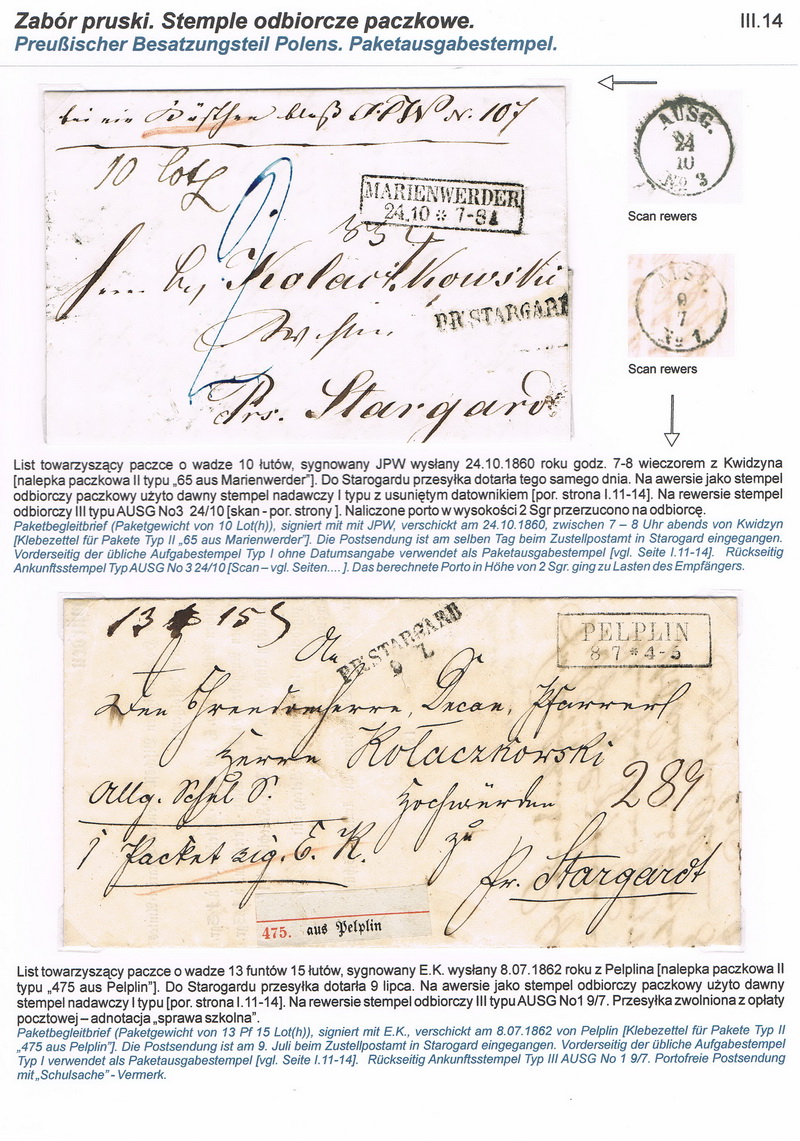 Zabór pruski. Stemple odbiorcze paczkowe.
III.14
Preußischer Besatzungsteil Polens. Paketausgabestempel.
bei ein bloß J.P.W N. 107
10 loth
MARIENWERDER
24.10 * 7-8A
2
Kolaczkowski
PR:STARGARD
Prs. Stargard
AUSG.
24
10
No 3
Scan rewers
AUSG.
9
7
No 1
Scan rewers
List towarzyszący paczce o wadze 10 łutów, sygnowany JPW wysłany 24.10.1860 roku godz. 7-8 wieczorem z Kwidzyna
[nalepka paczkowa II typu „65 aus Marienwerder”]. Do Starogardu przesyłka dotarła tego samego dnia. Na awersie jako stempel
odbiorczy paczkowy użyto dawny stempel nadawczy I typu z usuniętym datownikiem [por. strona I.11-14]. Na rewersie stempel
odbiorczy III typu AUSG No3 24/10 [skan - por. strony ]. Naliczone porto w wysokości 2 Sgr przerzucono na odbiorcę.
Paketbegleitbrief (Paketgewicht von 10 Lot(h)), signiert mit mit JPW, verschickt am 24.10.1860, zwischen 7 – 8 Uhr abends von Kwidzyn
[Klebezettel für Pakete Typ II „65 aus Marienwerder”]. Die Postsendung ist am selben Tag beim Zustellpostamt in Starogard eingegangen.
Vorderseitig der übliche Aufgabestempel Typ I ohne Datumsangabe verwendet als Paketausgabestempel [vgl. Seite I.11-14]. Rückseitig
Ankunftsstempel Typ AUSG No 3 24/10 [Scan – vgl. Seiten.... ]. Das berechnete Porto in Höhe von 2 Sgr. ging zu Lasten des Empfängers.
13 15
PR:STARGARD
9 7
PELPLIN
8 7 * 4-5
An
Den Ehrendomherrn, Decan, Pfarrer
Herrn Kołaczkowski
Allg. Schul S.
Hochwürden
289
1 Packet sig. E. K.
zu
Pr. Stargardt
475. aus Pelplin
List towarzyszący paczce o wadze 13 funtów 15 łutów, sygnowany E.K. wysłany 8.07.1862 roku z Pelplina [nalepka paczkowa II
typu „475 aus Pelplin”]. Do Starogardu przesyłka dotarła 9 lipca. Na awersie jako stempel odbiorczy paczkowy użyto dawny
stempel nadawczy I typu [por. strona I.11-14]. Na rewersie stempel odbiorczy III typu AUSG No1 9/7. Przesyłka zwolniona z opłaty
pocztowej – adnotacja „sprawa szkolna”.
Paketbegleitbrief (Paketgewicht von 13 Pf 15 Lot(h)), signiert mit E.K., verschickt am 8.07.1862 von Pelplin [Klebezettel für Pakete Typ II
„475 aus Pelplin”]. Die Postsendung ist am 9. Juli beim Zustellpostamt in Starogard eingegangen. Vorderseitig der übliche Aufgabestempel
Typ I verwendet als Paketausgabestempel [vgl. Seite I.11-14]. Rückseitig Ankunftsstempel Typ III AUSG No 1 9/7. Portofreie Postsendung
mit „Schulsache” - Vermerk.